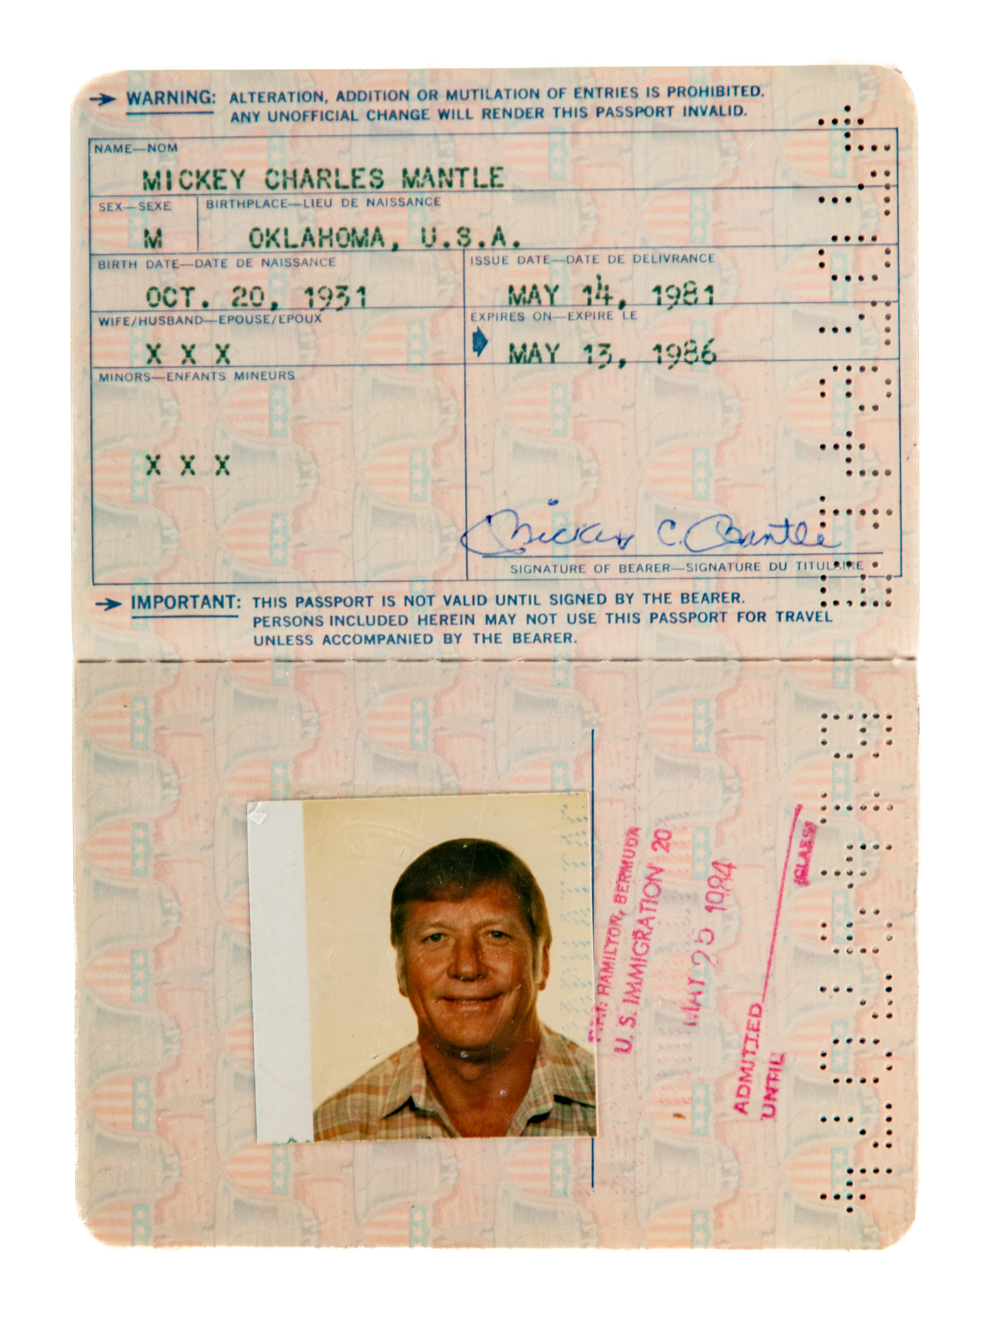 WARNING: ALTERATION, ADDITION OR MUTILATION OF ENTRIES IS PROHIBITED.
ANY UNOFFICIAL CHANGE WILL RENDER THIS PASSPORT INVALID.
NAME—NOM
MICKEY CHARLES MANTLE
SEX—SEXE BIRTHPLACE—LIEU DE NAISSANCE
M OKLAHOMA, U.S.A.
BIRTH DATE—DATE DE NAISSANCE ISSUE DATE—DATE DE DELIVRANCE
OCT. 20, 1931 MAY 14, 1981
WIFE/HUSBAND—EPOUSE/EPOUX EXPIRES ON—EXPIRE LE
X X X MAY 13, 1986
MINORS—ENFANTS MINEURS
X X X
Mickey C. Mantle
SIGNATURE OF BEARER—SIGNATURE DU TITULAIRE
IMPORTANT: THIS PASSPORT IS NOT VALID UNTIL SIGNED BY THE BEARER.
PERSONS INCLUDED HEREIN MAY NOT USE THIS PASSPORT FOR TRAVEL
UNLESS ACCOMPANIED BY THE BEARER.
HAMILTON, BERMUDA
U. S. IMMIGRATION 20
MAY
ADMITTED
(CLASS)
UNTIL